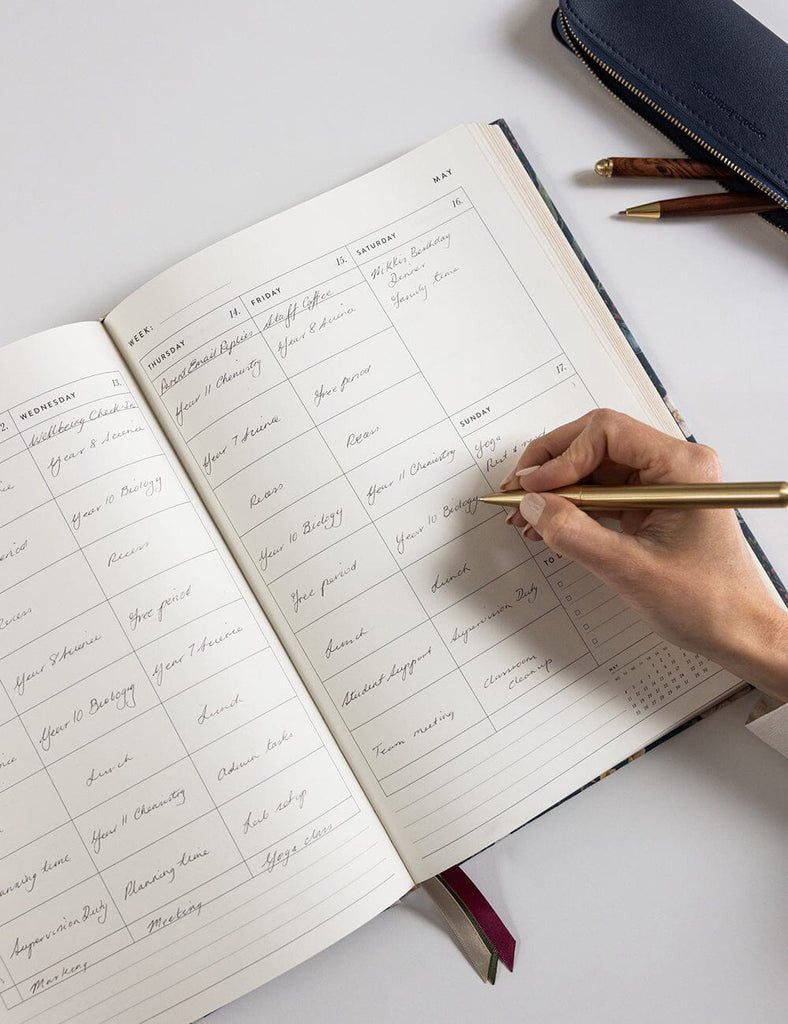 Supervision Duty
Marking
2.
Year 8 Science
Year 10 Biology
Lunch
Year 11 Chemistry
Planning time
Meeting
WEDNESDAY 13.
Wellbeing Check-In
Year 8 Science
Year 10 Biology
Recess
Free period
Year 7 Science
Lunch
Admin tasks
Lab setup
Yoga class
MAY
WEEK:
THURSDAY 14.
Parent Email Replies
Year 11 Chemistry
Year 7 Science
Recess
Year 10 Biology
Free period
Lunch
Student Support
Team meeting
FRIDAY 15.
Staff Coffee
Year 8 Science
Free period
Recess
Year 11 Chemistry
Year 10 Biology
Lunch
Supervision Duty
Classroom
clean up
SATURDAY 16.
Nikkis Birthday
Dinner
Family time
SUNDAY 17.
Yoga
Rest &
TO D
MAY